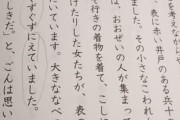 を考えながらや
、表に赤い井戸のある兵十
ました。その小さなこわれ
、おおぜいの人が集まっ
そ行きの着物を着て、こし
げたりした女たちが、表
いています。大きななべ
ずぐずにえていました。
しきだ。」と、ごんは思い